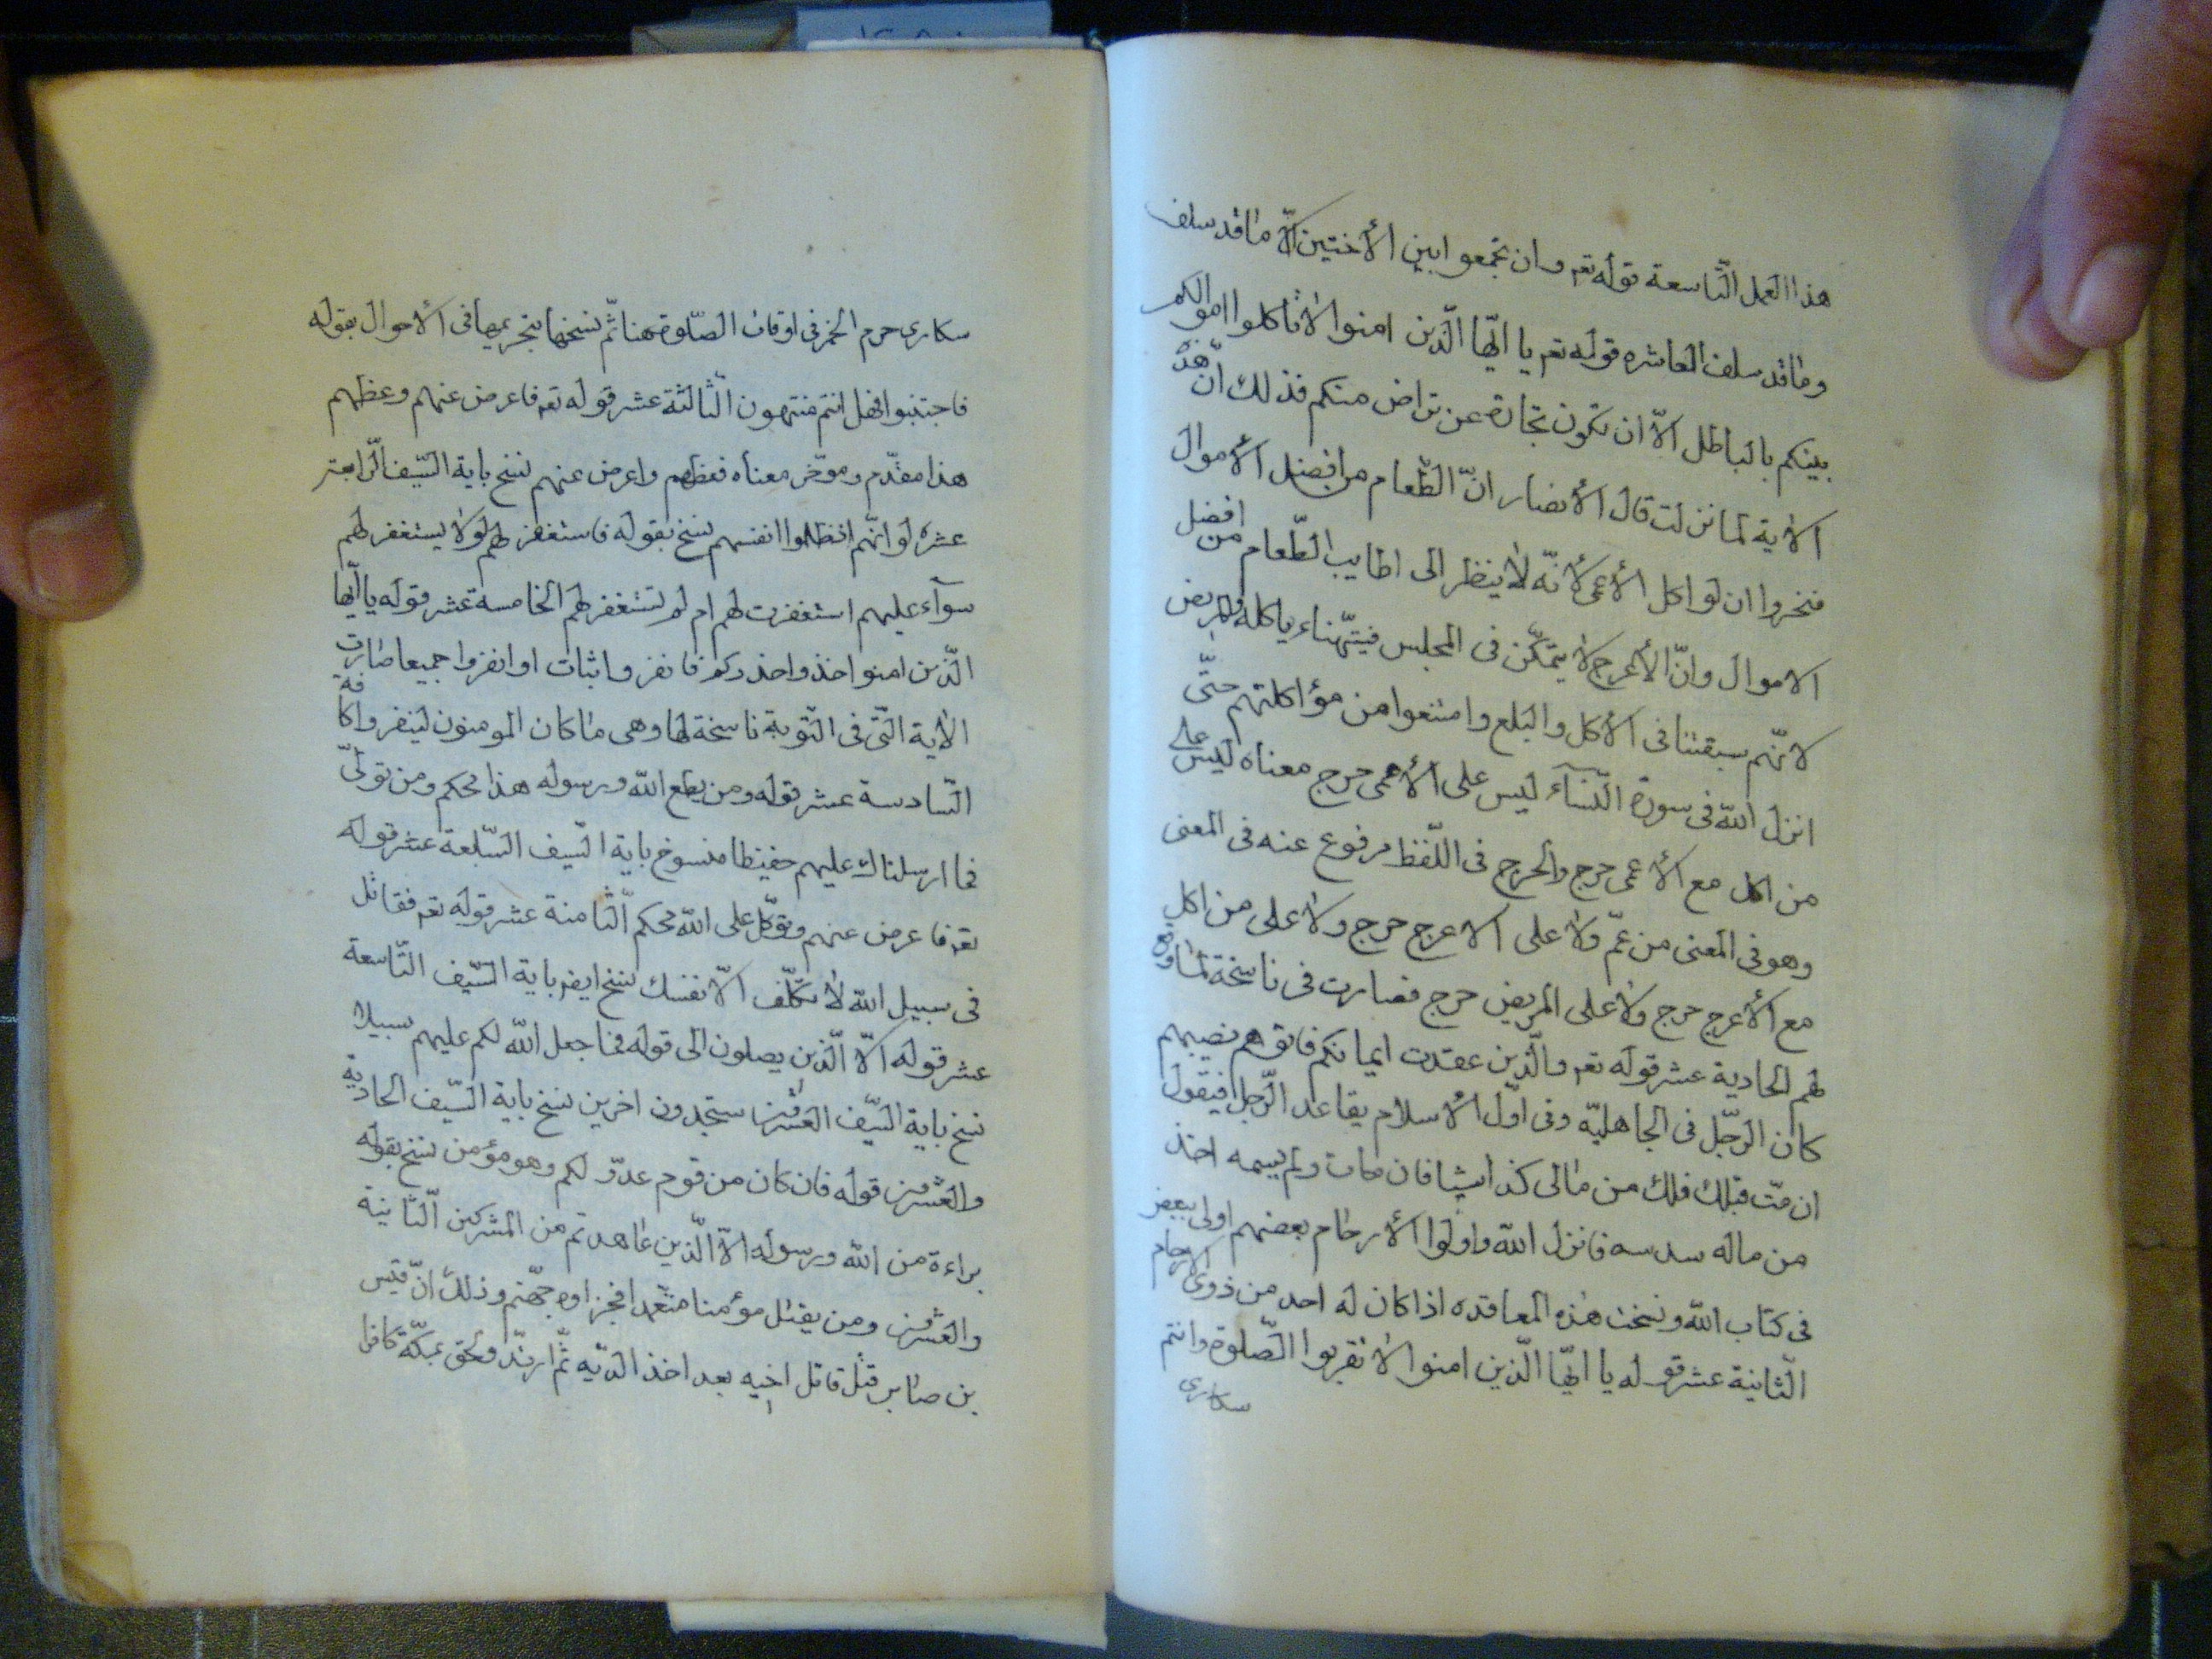 هذا العمل التّاسعة قوله تعـ وان تجمعوا بين الأختين الّا ما قد سلف
وما قد سلف العاشره قوله تعـ يا ايّها الّذين امنوا لا تاكلوا اموالكم
بينكم بالباطل الّا ان تكون تجارة عن تراض منكم فذلك انّ هذه
الاية لما نزلت قال الأنصار انّ الطّعام من افضل الأموال
فتحروا ان لو اكل الأعمى لأنّه لا ينظر الى اطايب الطّعام من افضل
الاموال وانّ الأعرج لا يتمكّن فى المجلس فيتّهناء ياكله والمريض
لانّهم سبقتنا فى الأكل والبلع وامتنعوا من مؤاكلتهم حتّى
انزل الله فى سورة النّساء ليس على الأعمى حرج معناه ليس على
من اكل مع الأعمى حرج والحرج فى اللّفظ مرفوع عنه فى المعنى
وهو فى المعنى من عمّ ولا على الاعرج حرج ولا على من اكل
مع الأعرج حرج ولا على المريض حرج فصارت فى ناسخة لما وقع
لهم الحادية عشر قوله تعـ والّذين عقدت ايمانكم فاتوهم نصيبهم
كان الرّجل فى الجاهليّه وفى اوّل الأسلام يقاعد الرّجل فيقول
ان متّ قبلك فلك من مالى كذا شيئا فان مات ولم يسمه اخذ
من ماله سدسه فانزل الله واولوا الأرحام بعضهم اولى ببعض
فى كتاب الله ونسخت هذه المعاقده اذا كان له احد من ذوى الارحام
الثّانية عشر قوله يا ايّها الّذين امنوا لا تقربوا الصّلوة وانتم
سكارى
سكارى حرم الخمر فى اوقات الصّلوة هنا ثمّ نسخها بتحريمها فى الأحوال بقوله
فاجتنبوا فهل انتم منتهون الثّالثة عشر قوله تعـ فاعرض عنهم وعظهم
هذا مقدّم وموخّر معناه فعظهم واعرض عنهم نسخ باية السّيف الرّابعة
عشره لو انّهم اذ ظلموا انفسهم نسخ بقوله فاستغفر لهم او لا يستغفر لهم
سوآء عليهم استغفرت لهم ام لم تستغفر لهم الخامسة عشر قوله يا ايّها
الّذين امنوا خذوا حذركم فانفروا ثبات او انفروا جميعا صارت
الاية الّتى فى التّوبة ناسخة لها وهى ما كان المومنون لينفروا كافة
السّادسة عشر قوله ومن يطع الله ورسوله هذا محكم ومن تولّى
فما ارسلناك عليهم حفيظا منسوخ باية السّيف السّابعة عشر قوله
تعـ فاعرض عنهم وتوكّل على الله محكم الثّامنة عشر قوله تعـ فقاتل
فى سبيل الله لا تكلّف الّا نفسك نسخ ايضـ باية السّيف التّاسعة
عشر قوله الّا الّذين يصلون الى قوله فما جعل الله لكم عليهم سبيلا
نسخ باية السّيف العشرون ستجدون اخرين نسخ باية السّيف الحادية
والعشرون قوله فان كان من قوم عدوّ لكم وهو مؤمن نسخ بقوله
براءة من الله ورسوله الّا الّذين عاهدتم من المشركين الثّانية
والعشرون ومن يقتل مؤمنا متعّمدا فجزاوه جهّنم وذلك انّ قيس
بن صابر قتل قاتل اخيه بعد اخذ الدّيه ثمّ ارتدّ ولحق بمكّة كافرا